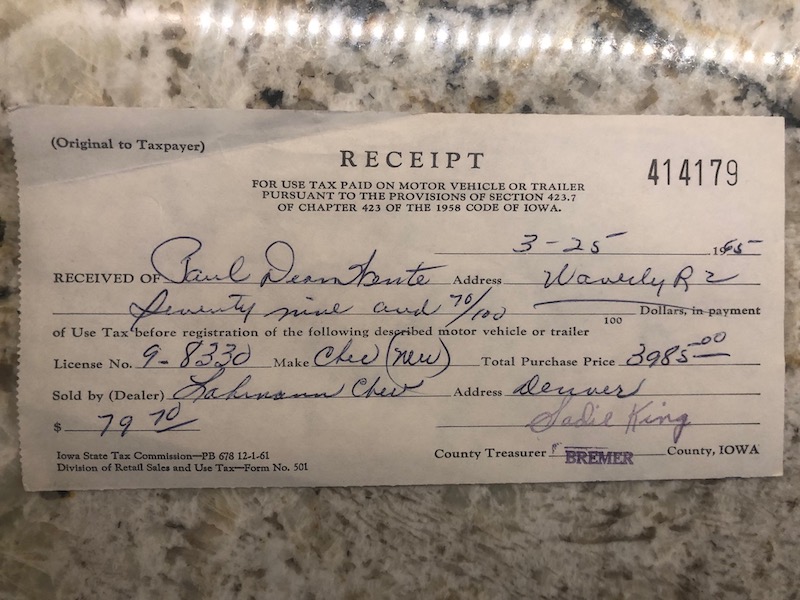 (Original to Taxpayer)
RECEIPT
414179
FOR USE TAX PAID ON MOTOR VEHICLE OR TRAILER
PURSUANT TO THE PROVISIONS OF SECTION 423.7
OF CHAPTER 423 OF THE 1958 CODE OF IOWA.
3-25 1965
RECEIVED OF Paul Dean Address Waverly R 2
Seventy nine and 70/100 100 Dollars, in payment
of Use Tax before registration of the following described motor vehicle or trailer
License No. 9-8330 Make Chev (new) Total Purchase Price 3985.00
Sold by (Dealer) Chev Address Denver
$ 79 70 Sadie King
County Treasurer BREMER County, IOWA
Iowa State Tax Commission—PB 678 12-1-61
Division of Retail Sales and Use Tax—Form No. 501